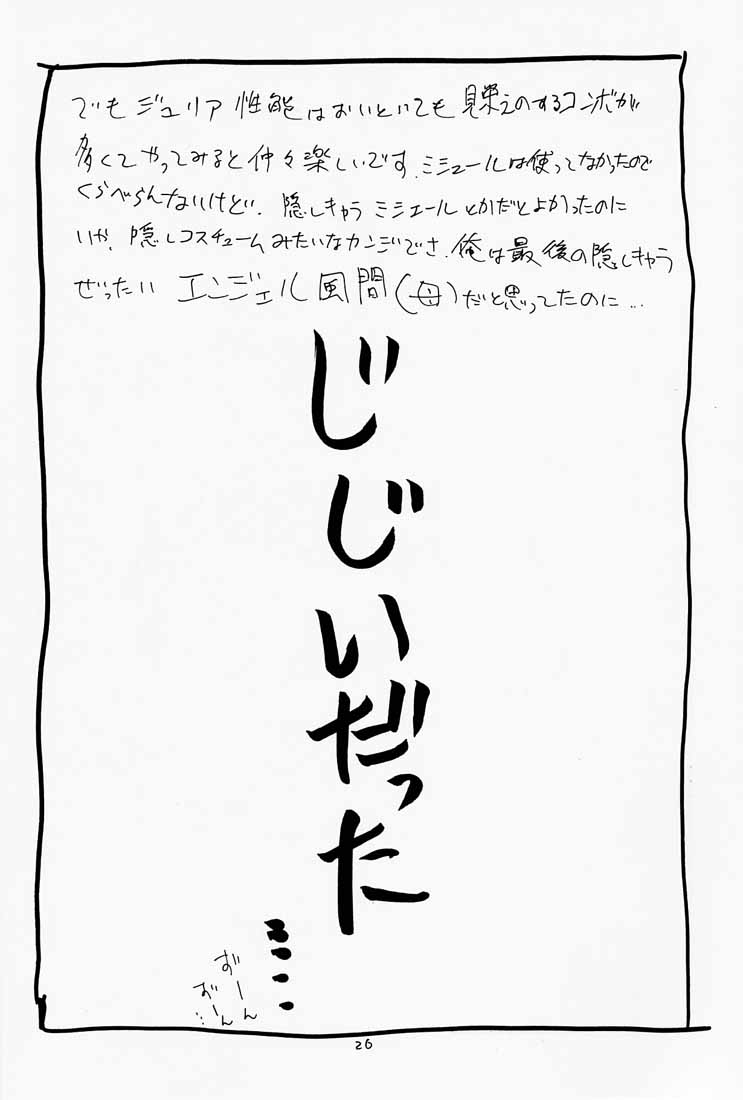 でもジュリア性能はおいといても見栄えのするコンボが
多くてやってみると仲々楽しいです.ミシェールは使ってなかったので
くらべらんないけど.隠しきゃらミシェールとかだとよかったのに
いや、隠しコスチュームみたいなカンジでさ.俺は最後の隠しきゃう
ぜったいエンジェル風間(母)だと思ってたのに…
じじいだった
ずーん
ずーん…
26